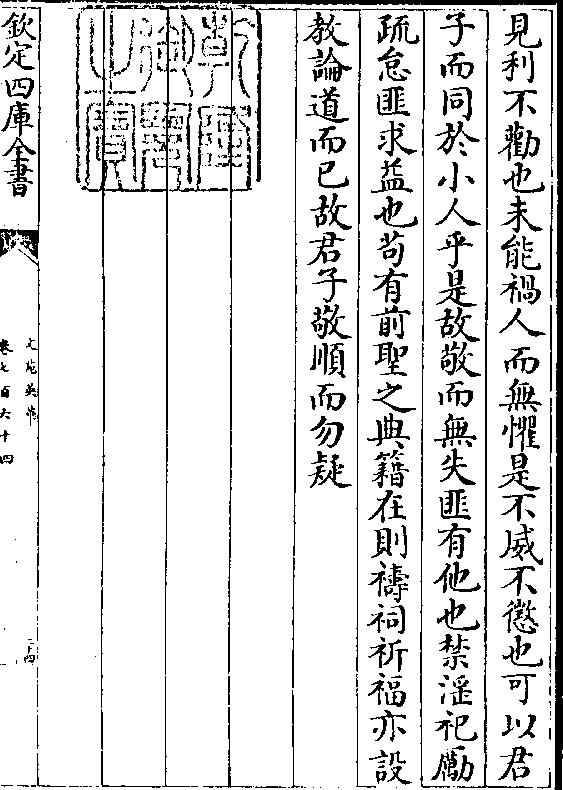 見利不勸也未能禍人而無懼是不威不懲也可以君
子而同於小人乎是故敬而無失匪有他也禁淫祀勵
疏怠匪求益也茍有前聖之典籍在則禱祠祈福亦設
教論道而已故君子敬順而勿疑
乾隆御覽之寶
欽定四庫全書
文苑英華
卷七百六十四
二十四